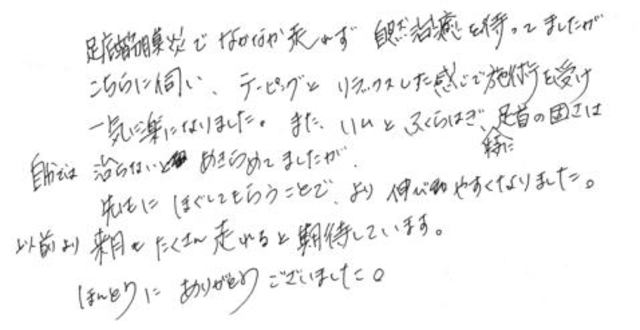 足底筋膜炎でなかなか走れず 自然治癒を待ってましたが
こちらに伺い、テーピングと リラックスした感じで施術を受け
一気に楽になりました。また、ハムとふくらはぎ、特に足首の固さは
自分では 治らないと あきらめてましたが、
先生に ほぐしてもらうことで、より 伸び やすくなりました。
以前より 来月も たくさん 走れると 期待しています。
ほんとうに ありがとう ございました。